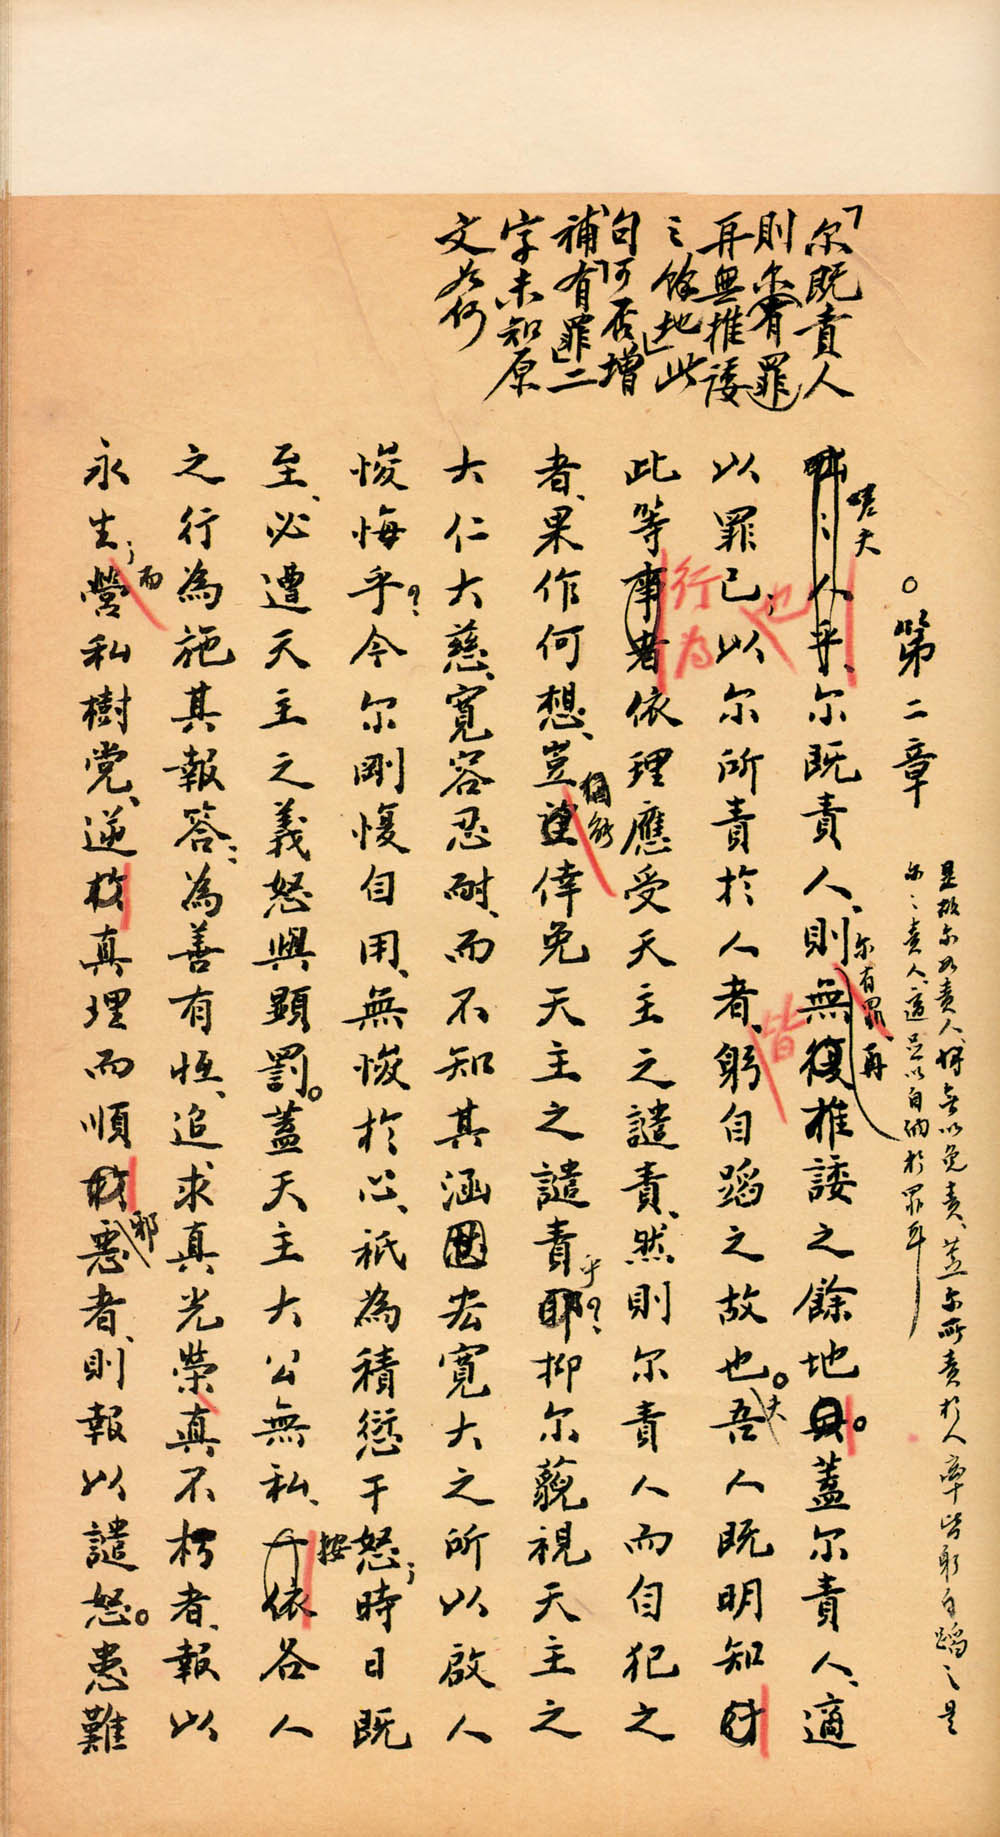 「尔既責人
則尔(有罪)
再無推諉
之餘地」此
句可否增
補「有罪」二
字未知原
文如何
是故尔以責人、將無以免責、蓋尔所責於人率皆躬自蹈之是
尔之責人、適足以自納於罪耳
第二章
嗟夫
人乎、尔既責人、則無復推諉之餘地。蓋尔責人、適
尔有罪、再
以罪己；以尔所責於人者、躬自蹈之故也。吾人既明知
也
皆
夫
此等事者依理應受天主之譴責、然則尔責人而自犯之
行為
者、果作何想、豈望倖免天主之譴責耶抑尔藐視天主之
個能
乎？
大仁大慈、寬容忍耐、而不知其涵宏寬大之所以啟人
悛悔乎？今尔剛愎自用、無悛於心、祇為積愆干怒；時日既
至、必遭天主之義怒與顯罰。蓋天主大公無私、依各人
按
之行為施其報答：為善有恆、追求真光榮、真不朽者、報以
永生；營私樹党、逆於真理而順於惡者、則報以譴怒。患難
而
邪